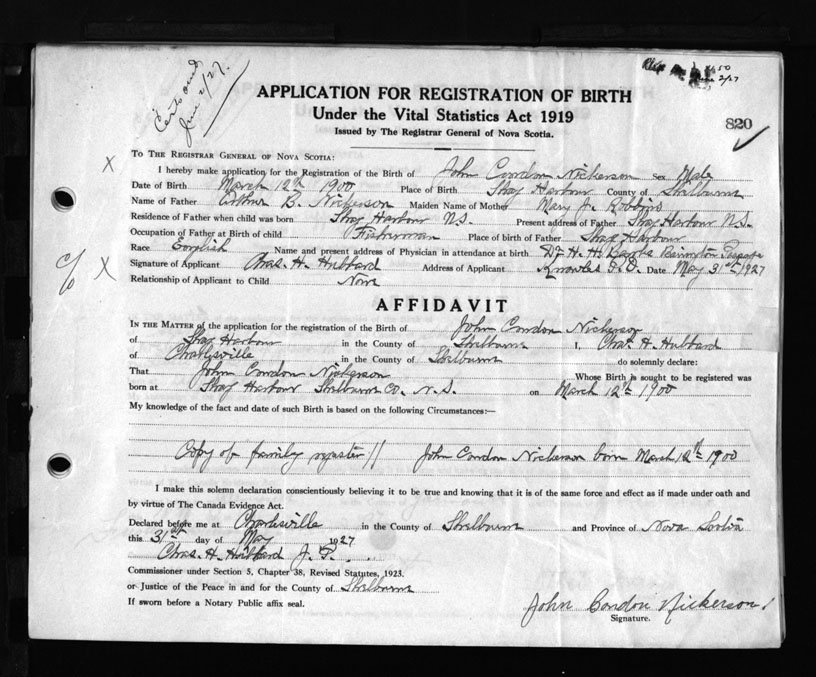 Cert issued
June 2/27.
50
June 2/27
820
APPLICATION FOR REGISTRATION OF BIRTH
Under the Vital Statistics Act 1919
Issued by The Registrar General of Nova Scotia.
TO THE REGISTRAR GENERAL OF NOVA SCOTIA:
I hereby make application for the Registration of the Birth of John Condon Nickerson Sex Male
Date of Birth March 12th 1900 Place of Birth Shag Harbour County of Shelburne
Name of Father Arthur B. Nickerson Maiden Name of Mother Mary J. Robbins
Residence of Father when child was born Shag Harbour N.S. Present address of Father Shag Harbour N.S.
Occupation of Father at Birth of child Fisherman Place of birth of Father Shag Harbour
Race English Name and present address of Physician in attendance at birth Dr H. H. Barrington Passage
Signature of Applicant Chas. H. Hubbard Address of Applicant Knowles P.O. Date May 31st 1927
Relationship of Applicant to Child None
AFFIDAVIT
IN THE MATTER of the application for the registration of the Birth of John Condon Nickerson
of Shag Harbour in the County of Shelburne I, Chas. H. Hubbard
of Charlesville in the County of Shelburne do solemnly declare:
That John Condon Nickerson Whose Birth is sought to be registered was
born at Shag Harbour Shelburne Co. N.S. on March 12th 1900
My knowledge of the fact and date of such Birth is based on the following Circumstances:—
Copy of family register // John Condon Nickerson born March 12th 1900
I make this solemn declaration conscientiously believing it to be true and knowing that it is of the same force and effect as if made under oath and
by virtue of The Canada Evidence Act.
Declared before me at Charlesville in the County of Shelburne and Province of Nova Scotia
this 31st day of May 1927
Chas. H. Hubbard J. P.
Commissioner under Section 5, Chapter 38, Revised Statutes, 1923.
or Justice of the Peace in and for the County of Shelburne
If sworn before a Notary Public affix seal.
John Condon Nickerson
Signature.